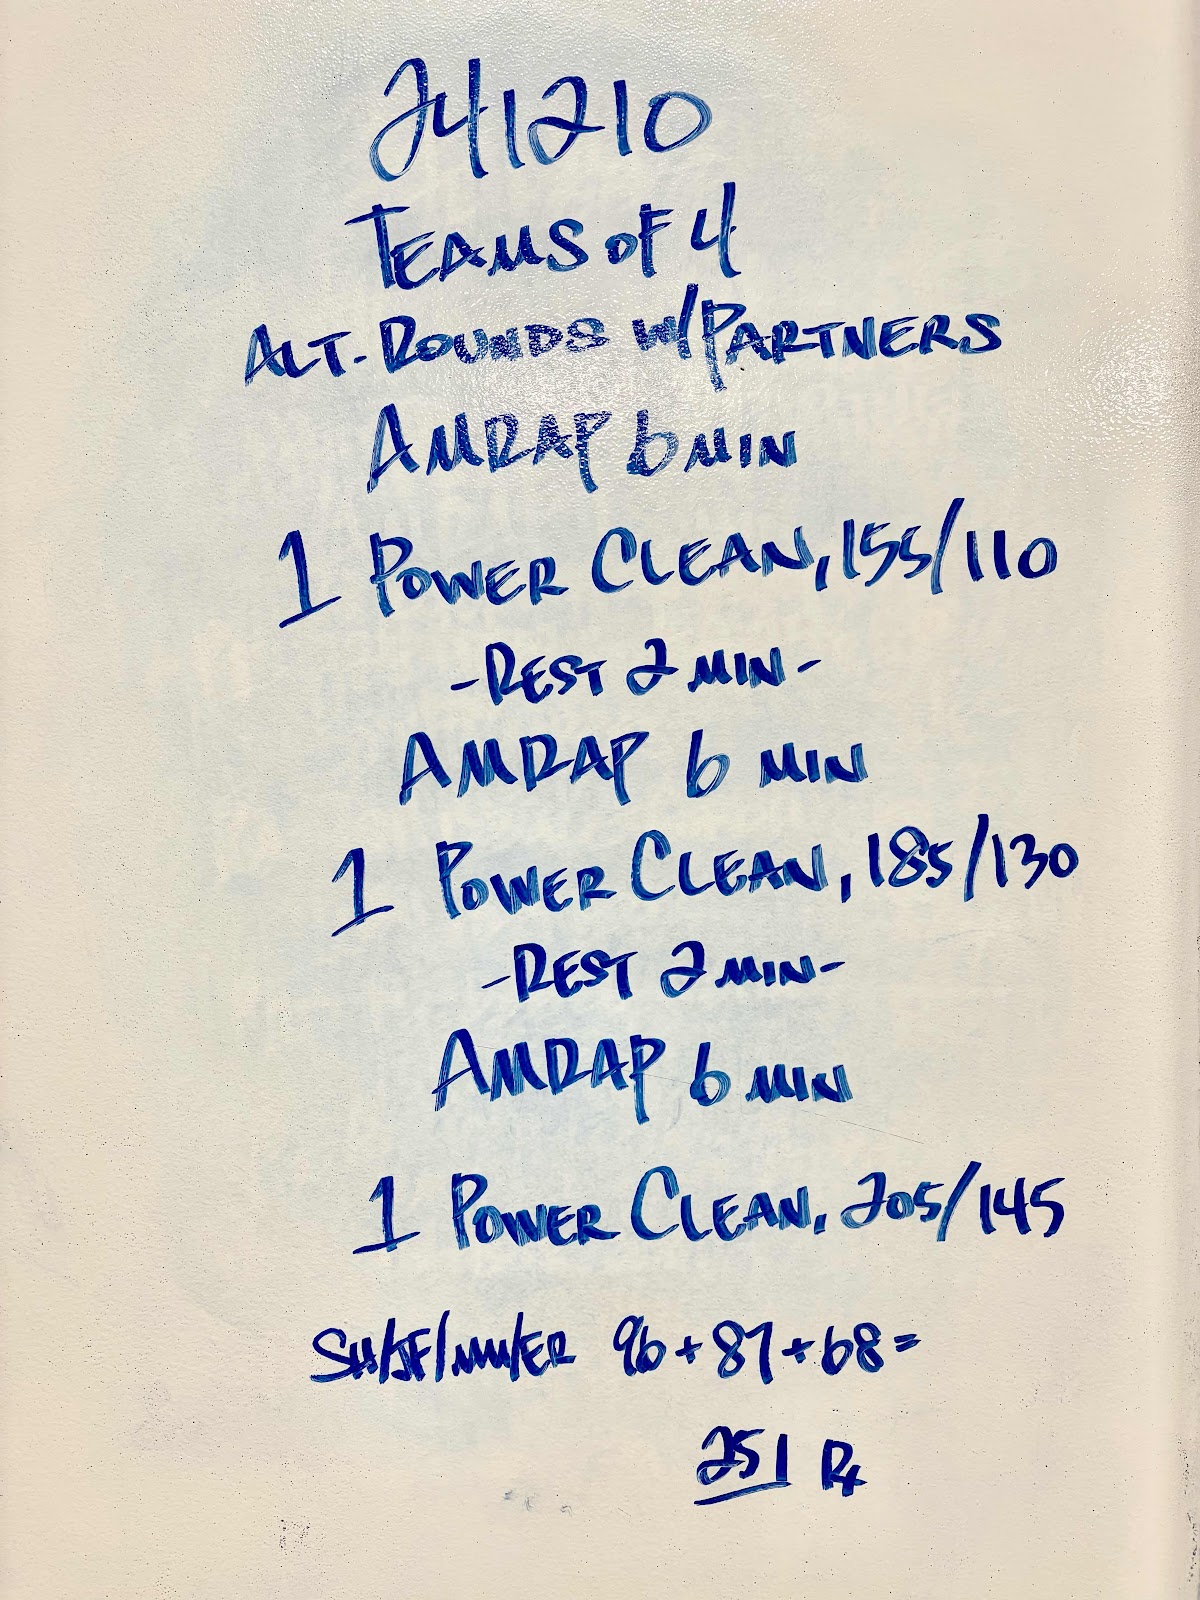 241210
TEAMS OF 4
ALT. ROUNDS W/PARTNERS
AMRAP 6 MIN
1 POWER CLEAN, 155/110
-REST 2 MIN-
AMRAP 6 MIN
1 POWER CLEAN, 185/130
-REST 2 MIN-
AMRAP 6 MIN
1 POWER CLEAN, 205/145
SH/JF/MM/ER 96+87+68=
251 Rx